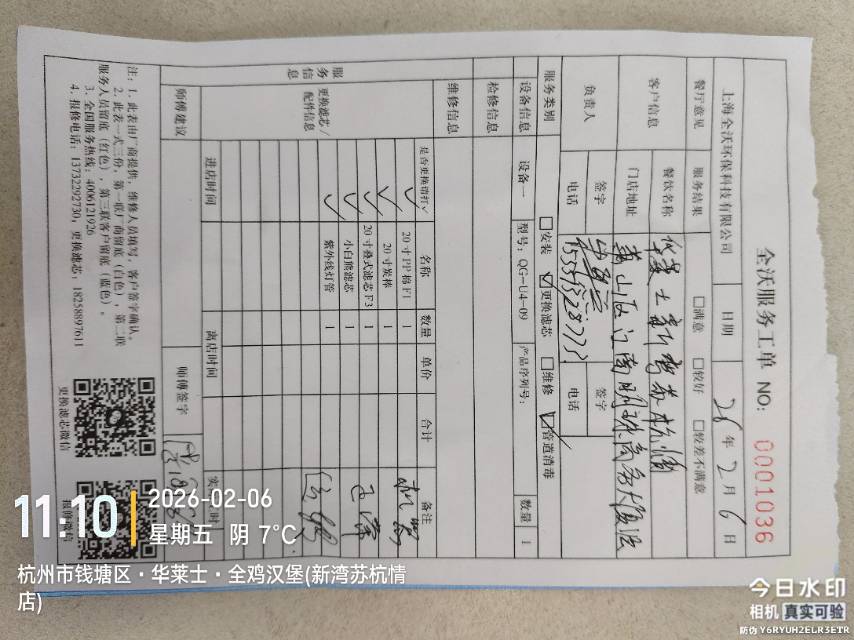 全沃服务工单 NO: 0001036
上海全沃环保科技有限公司 日期 26年2月6日
餐厅意见 服务结果 □满意 □较好 □较差不满意
客户信息 餐饮名称 华莱士新湾苏杭情
门店地址 萧山区
负责人 签字 签字
电话 电话
服务类别 □安装 ☑更换滤芯 □维修 ☑管道消毒
设备信息 设备一 型号: QG-U4-09 产品序列号: 数量 1
检修信息
维修信息
服务信息 更换滤芯/配件信息 是否更换请打√ 名称 数量 单价 合计 备注
√ 20寸PP棉F1 1
√ 20寸炭棒 1
√ 20寸叠式滤芯F3 1
√ 小白熊滤芯 1
√ 紫外线灯管 1
进店时间 离店时间
师傅建议 师傅签字
注: 1. 此表由厂商提供, 维修人员填写, 客户签字确认。
2. 此表一式三份, 第一联厂商留底(白色), 第二联
服务人员留底(红色), 第三联客户留底(蓝色)。
3. 全国服务热线: 4006121926
4. 报修电话: 13732292730, 更换滤芯: 18258897611
更换滤芯微信
11:10
2026-02-06
星期五 阴 7°C
杭州市钱塘区·华莱士·全鸡汉堡(新湾苏杭情
店)
今日水印
相机 真实可验
防伪 Y6RYUH2ELR3ETR